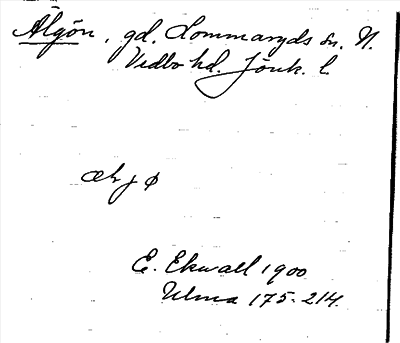 Älgön, gd. Lommaryds sn. N.
Vedbo hd. Jönk. l.
E. Ekwall 1900
Ulma 175-214.